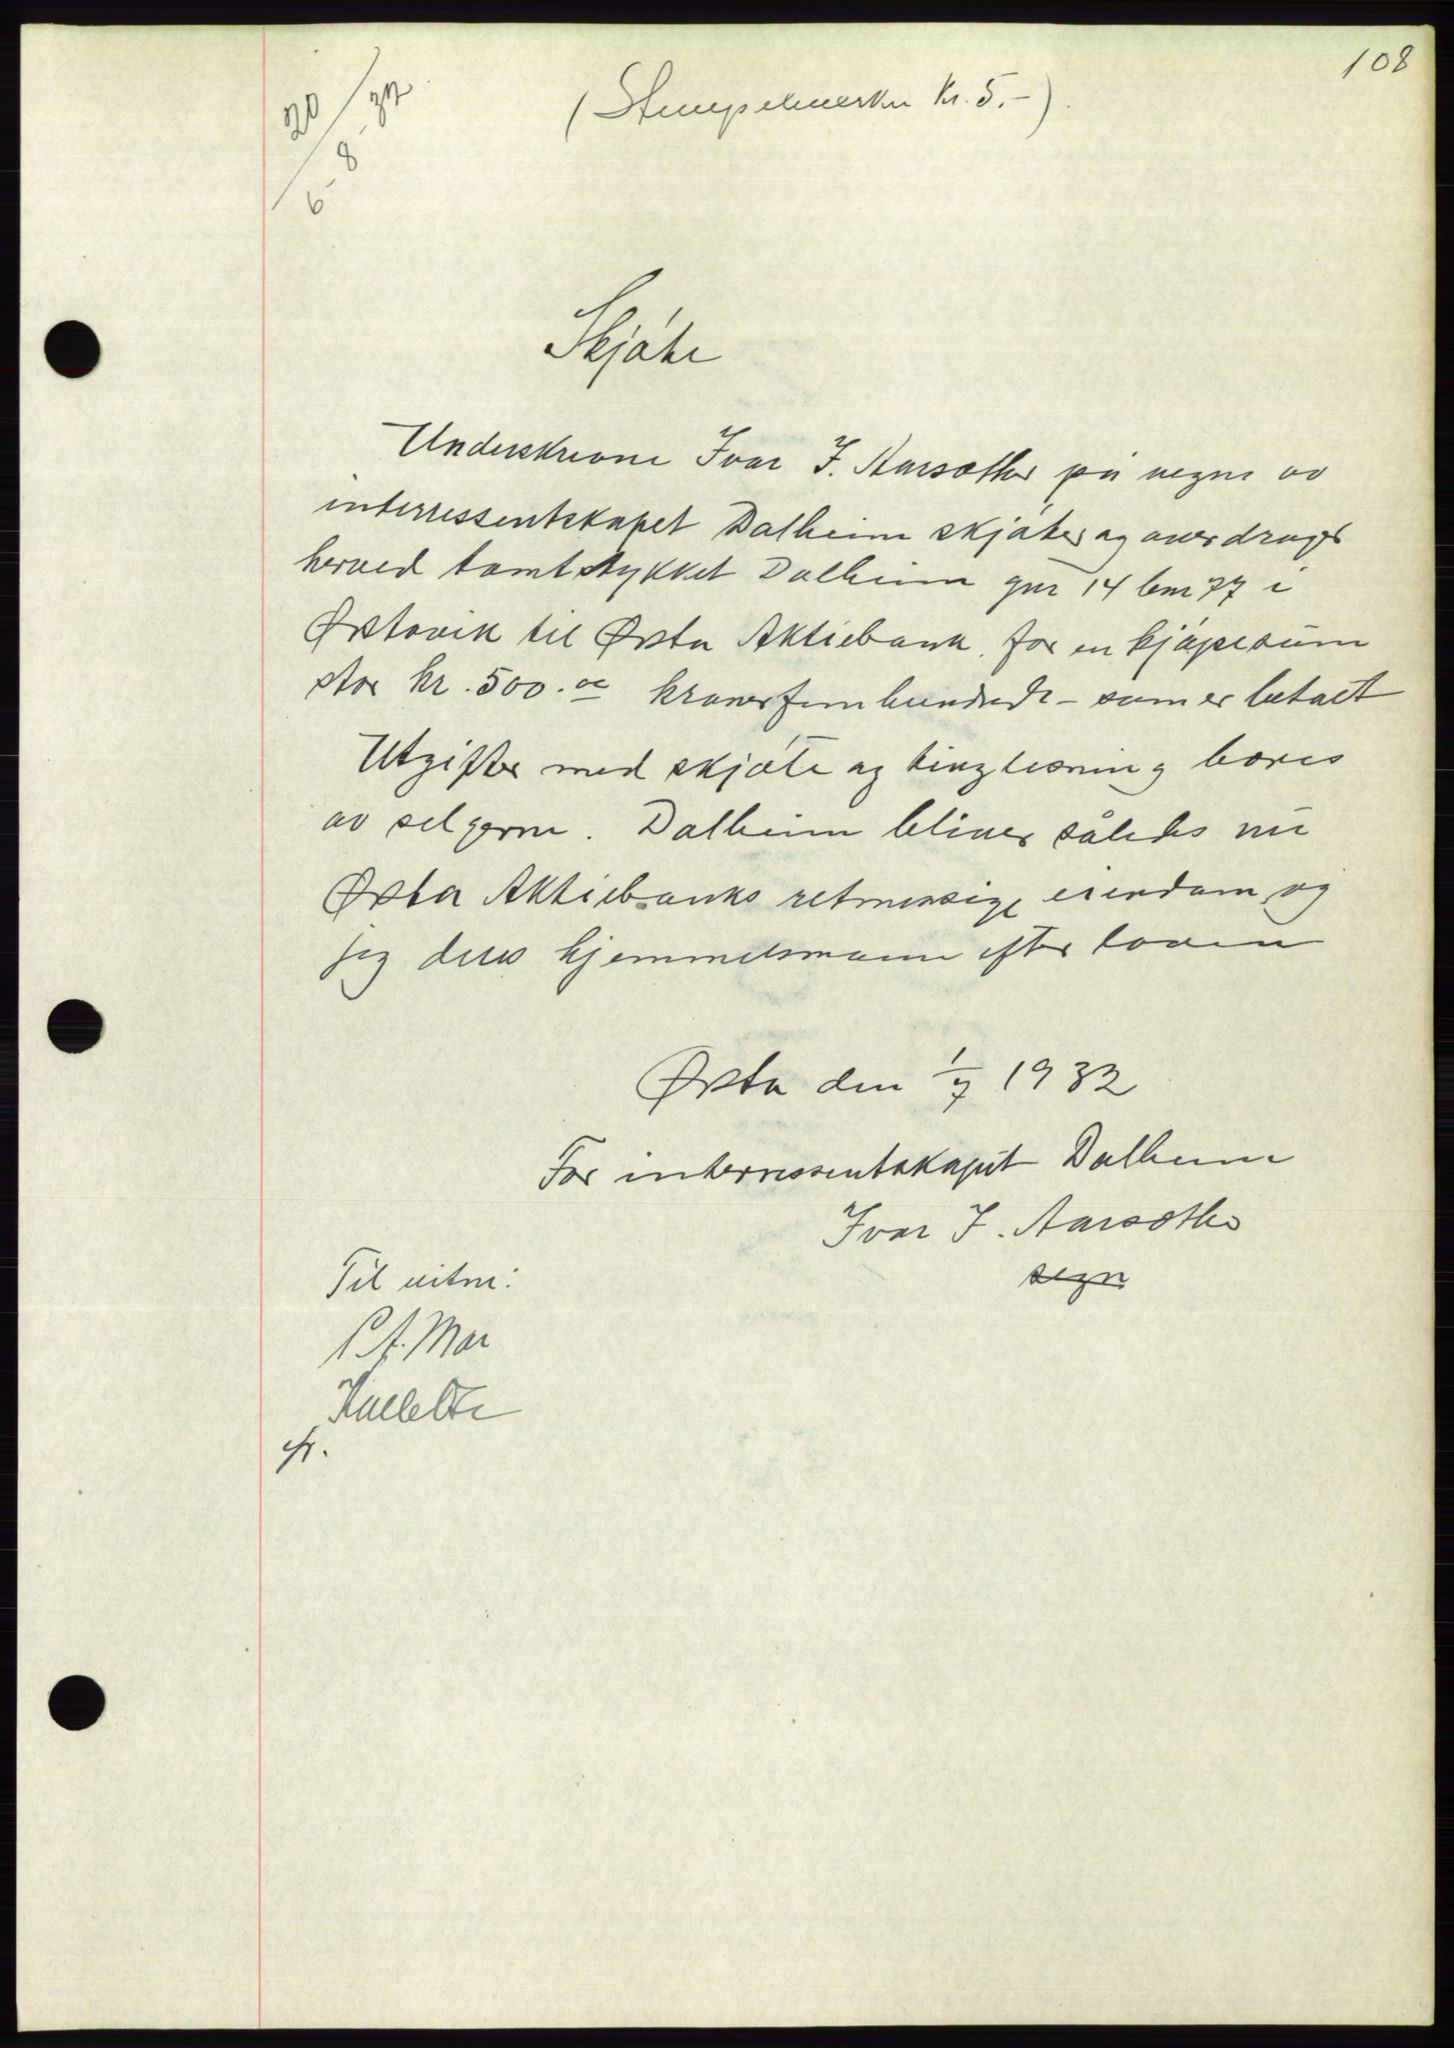 108
20/32
6-8
(Stempelmerke Kr. 5.-).
Skjøte
Underskrevne Ivar I. Aarsæther på vegne av
interressentskapet Dalheim skjøter og overdrager
herved tomtstykket Dalheim gnr 14 bnr 77 i
Ørstavik til Ørsta Aktiebank. for en kjøpesum
stor kr. 500.00 kroner femhundrede - som er betalt
Utgifter med skjøte og tinglesning bæres
av selgerne. Dalheim bliver således nu
Ørsta Aktiebanks retmessige eiendom og
jeg deres hjemmelsmann efter loven
Ørsta den 1/7 1932
For interressentskapet Dalheim
Ivar I. Aarsæther
sign
Til vitne:
P A. Mo